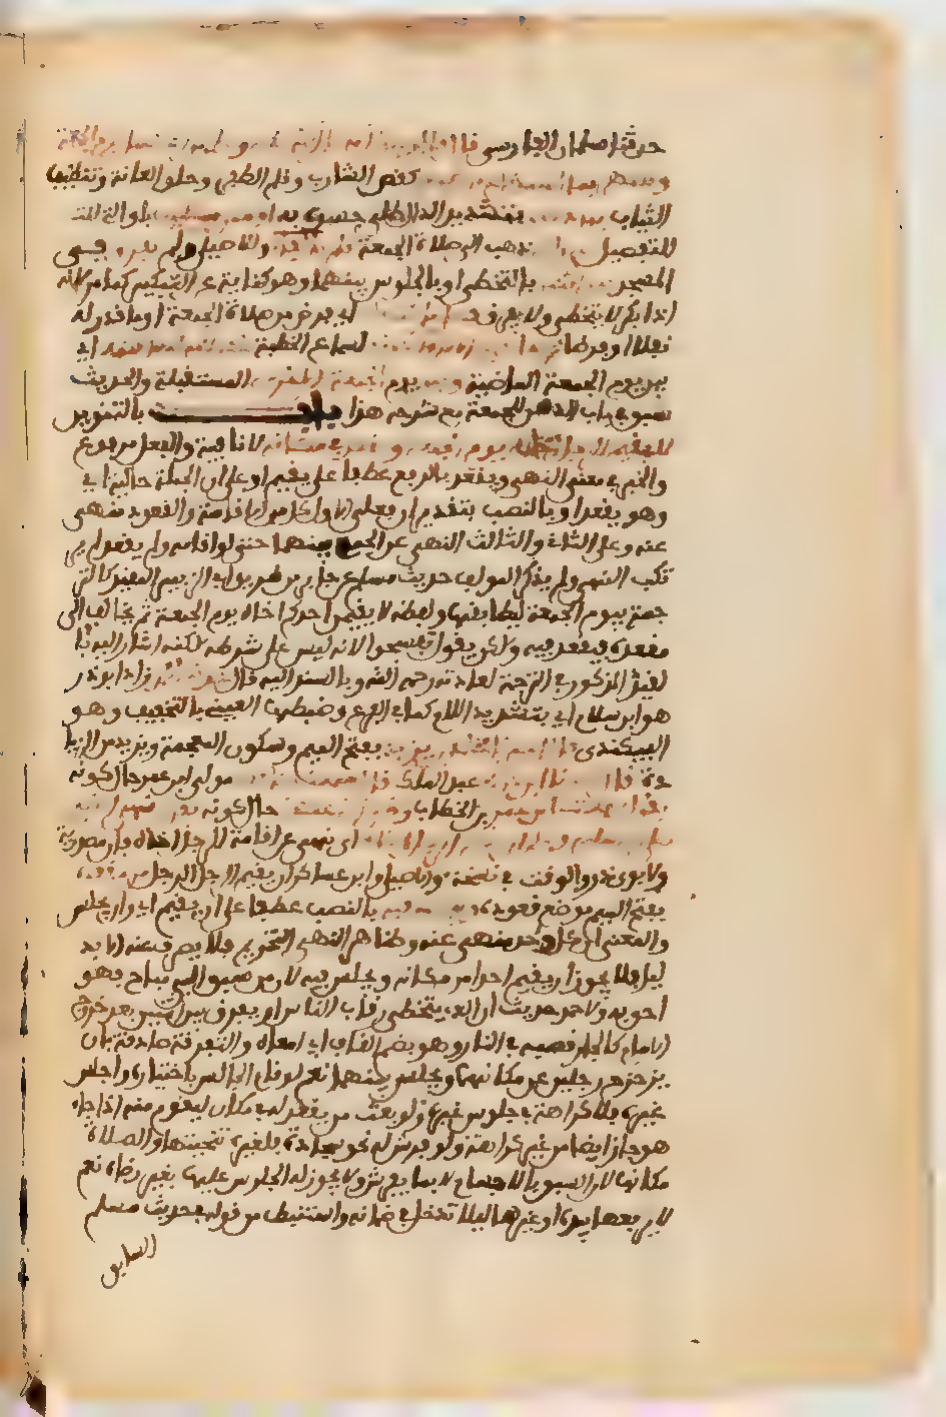 حدثنا سلمان الفارسي قال
كقص الشارب وقلم الظفر وحلق العانة وتنظيف
الثياب بتشديد الدال الطاء
للتفصيل ذهب الى صلاة الجمعة وللاصيلي ولم يفرق في
المسجد بالتخطي او بالجلوس بينهما وهو كناية عن التبكير كما مر لانه
اذا بكر لا يتخطى ولا يفرق اي فرض من صلاة الجمعة او ما قدر له
نفلا او فرضا لسماع الخطبة اي
بين يوم الجمعة الماضية وبين يوم الجمعة المستقبلة والحديث
سبق في باب الدهن للجمعة مع شرحه هذا باب بالتنوين
لا يقيم الرجل اخاه يوم الجمعة ويقعد في مكانه لا نافية والفعل مرفوع
والخبر في معنى النهي ويقعد بالرفع عطفا على يقيم او على ان الجملة حالية اي
وهو يقعد او بالنصب بتقدير ان فعلى الاول كل من الاقامة والقعود منهي
عنه وعلى الثاني والثالث النهي عن الجمع بينهما حتى لو اقامه ولم يقعد لم ير
تكب النهي ولم يذكر المولف حديث مسلم عن جابر من طريق ابي الزبير المقيد كالتر
جمة بيوم الجمعة ليطابقها ولفظه لا يقيمن احدكم اخاه يوم الجمعة ثم يخالف الى
مقعده فيقعد فيه ولكن يقول تفسحوا لانه ليس على شرطه لكنه اشار اليه با
لقيد المذكور في الترجمة لعادته رحمه الله وبالسند اليه قال زاد ابو ذر
هو ابن سلام اي بتشديد اللام كما في الفرع وضبطها العيني بالتخفيف وهو
البيكندي بفتح الميم وسكون المعجمة ويزيد من الزيا
دة قال عبد الملك قال مولى ابن عمر حال كونه
ابن عمر بن الخطاب حال كونه
اي نهى عن اقامة الرجل اخاه
ولابوي ذر والوقت في نسخة والاصيلي وابن عساكر ان يقيم الرجل الرجل من مقعده
بفتح الميم موضع قعوده بالنصب عطفا على ان يقيم اي وان يجلس
والمعنى ان كل واحد منهي عنه وظاهر النهي التحريم فلا يصرف عنه الا بد
ليل فلا يجوز ان يقيم احدا من مكانه ويجلس فيه لان من سبق الى مباح فهو
احق به ولاحمد حديث ان الذي يتخطى رقاب الناس او يفرق بين اثنين بعد خروج
الامام كالجار قصبه في النار وهو بضم القاف اي امعاه والتفرقة صادقة بان
يزحزح رجلين عن مكانهما ويجلس بينهما نعم لو قام الجالس باختياره واجلس
غيره فلا كراهة في جلوس غيره ولو بعث من يقعد له في مكان ليقوم عنه اذا جاء
هو جاز ايضا من غير كراهة ولو فرش له نحو سجادة فلغيره تنحيتها والصلاة
مكانها لان السبق بالاجسام لا بما يفرش ولا يجوز له الجلوس عليها بغير رضاه نعم
لا يرفعها بيده او غيرها ليلا تدخل في ضمانه واستنبط من قوله في حديث مسلم
السابق